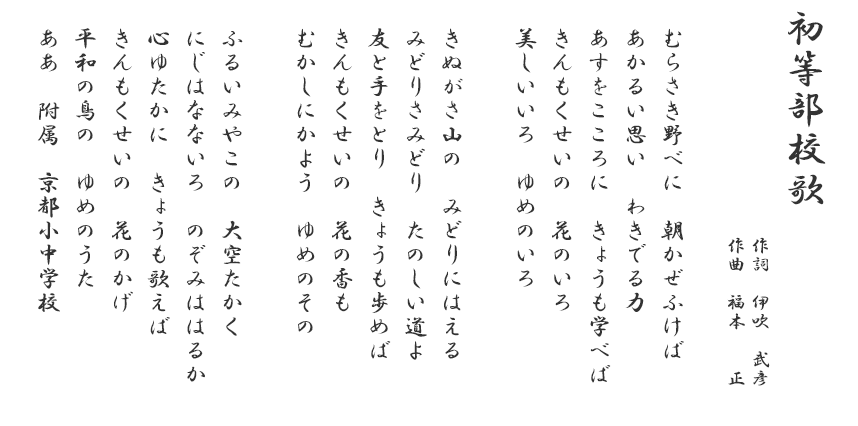 初等部校歌
作詞　伊吹　武彦
作曲　福本　正
むらさき野べに　朝かぜふけば
あかるい思い　わきでる力
あすをこころに　きょうも学べば
きんもくせいの　花のいろ
美しいいろ　ゆめのいろ
きぬがさ山の　みどりにはえる
みどりさみどり　たのしい道よ
友と手をとり　きょうも歩めば
きんもくせいの　花の香も
むかしにかよう　ゆめのその
ふるいみやこの　大空たかく
にじはなないろ　のぞみははるか
心ゆたかに　きょうも歌えば
きんもくせいの　花のかげ
平和の鳥の　ゆめのうた
ああ　附属　京都小中学校